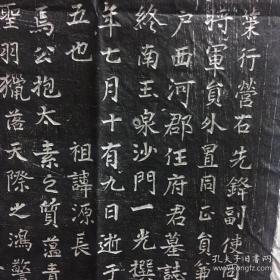 葉行營右先鋒副使
將軍負外置同正負
戶西河郡任府君墓誌
終南玉泉沙門一光撰
年七月十有九日逝于
五也 祖諱源長
馬公抱太素之質蘊青
聖羽獵落天際之鴻驚
孔夫子旧书网